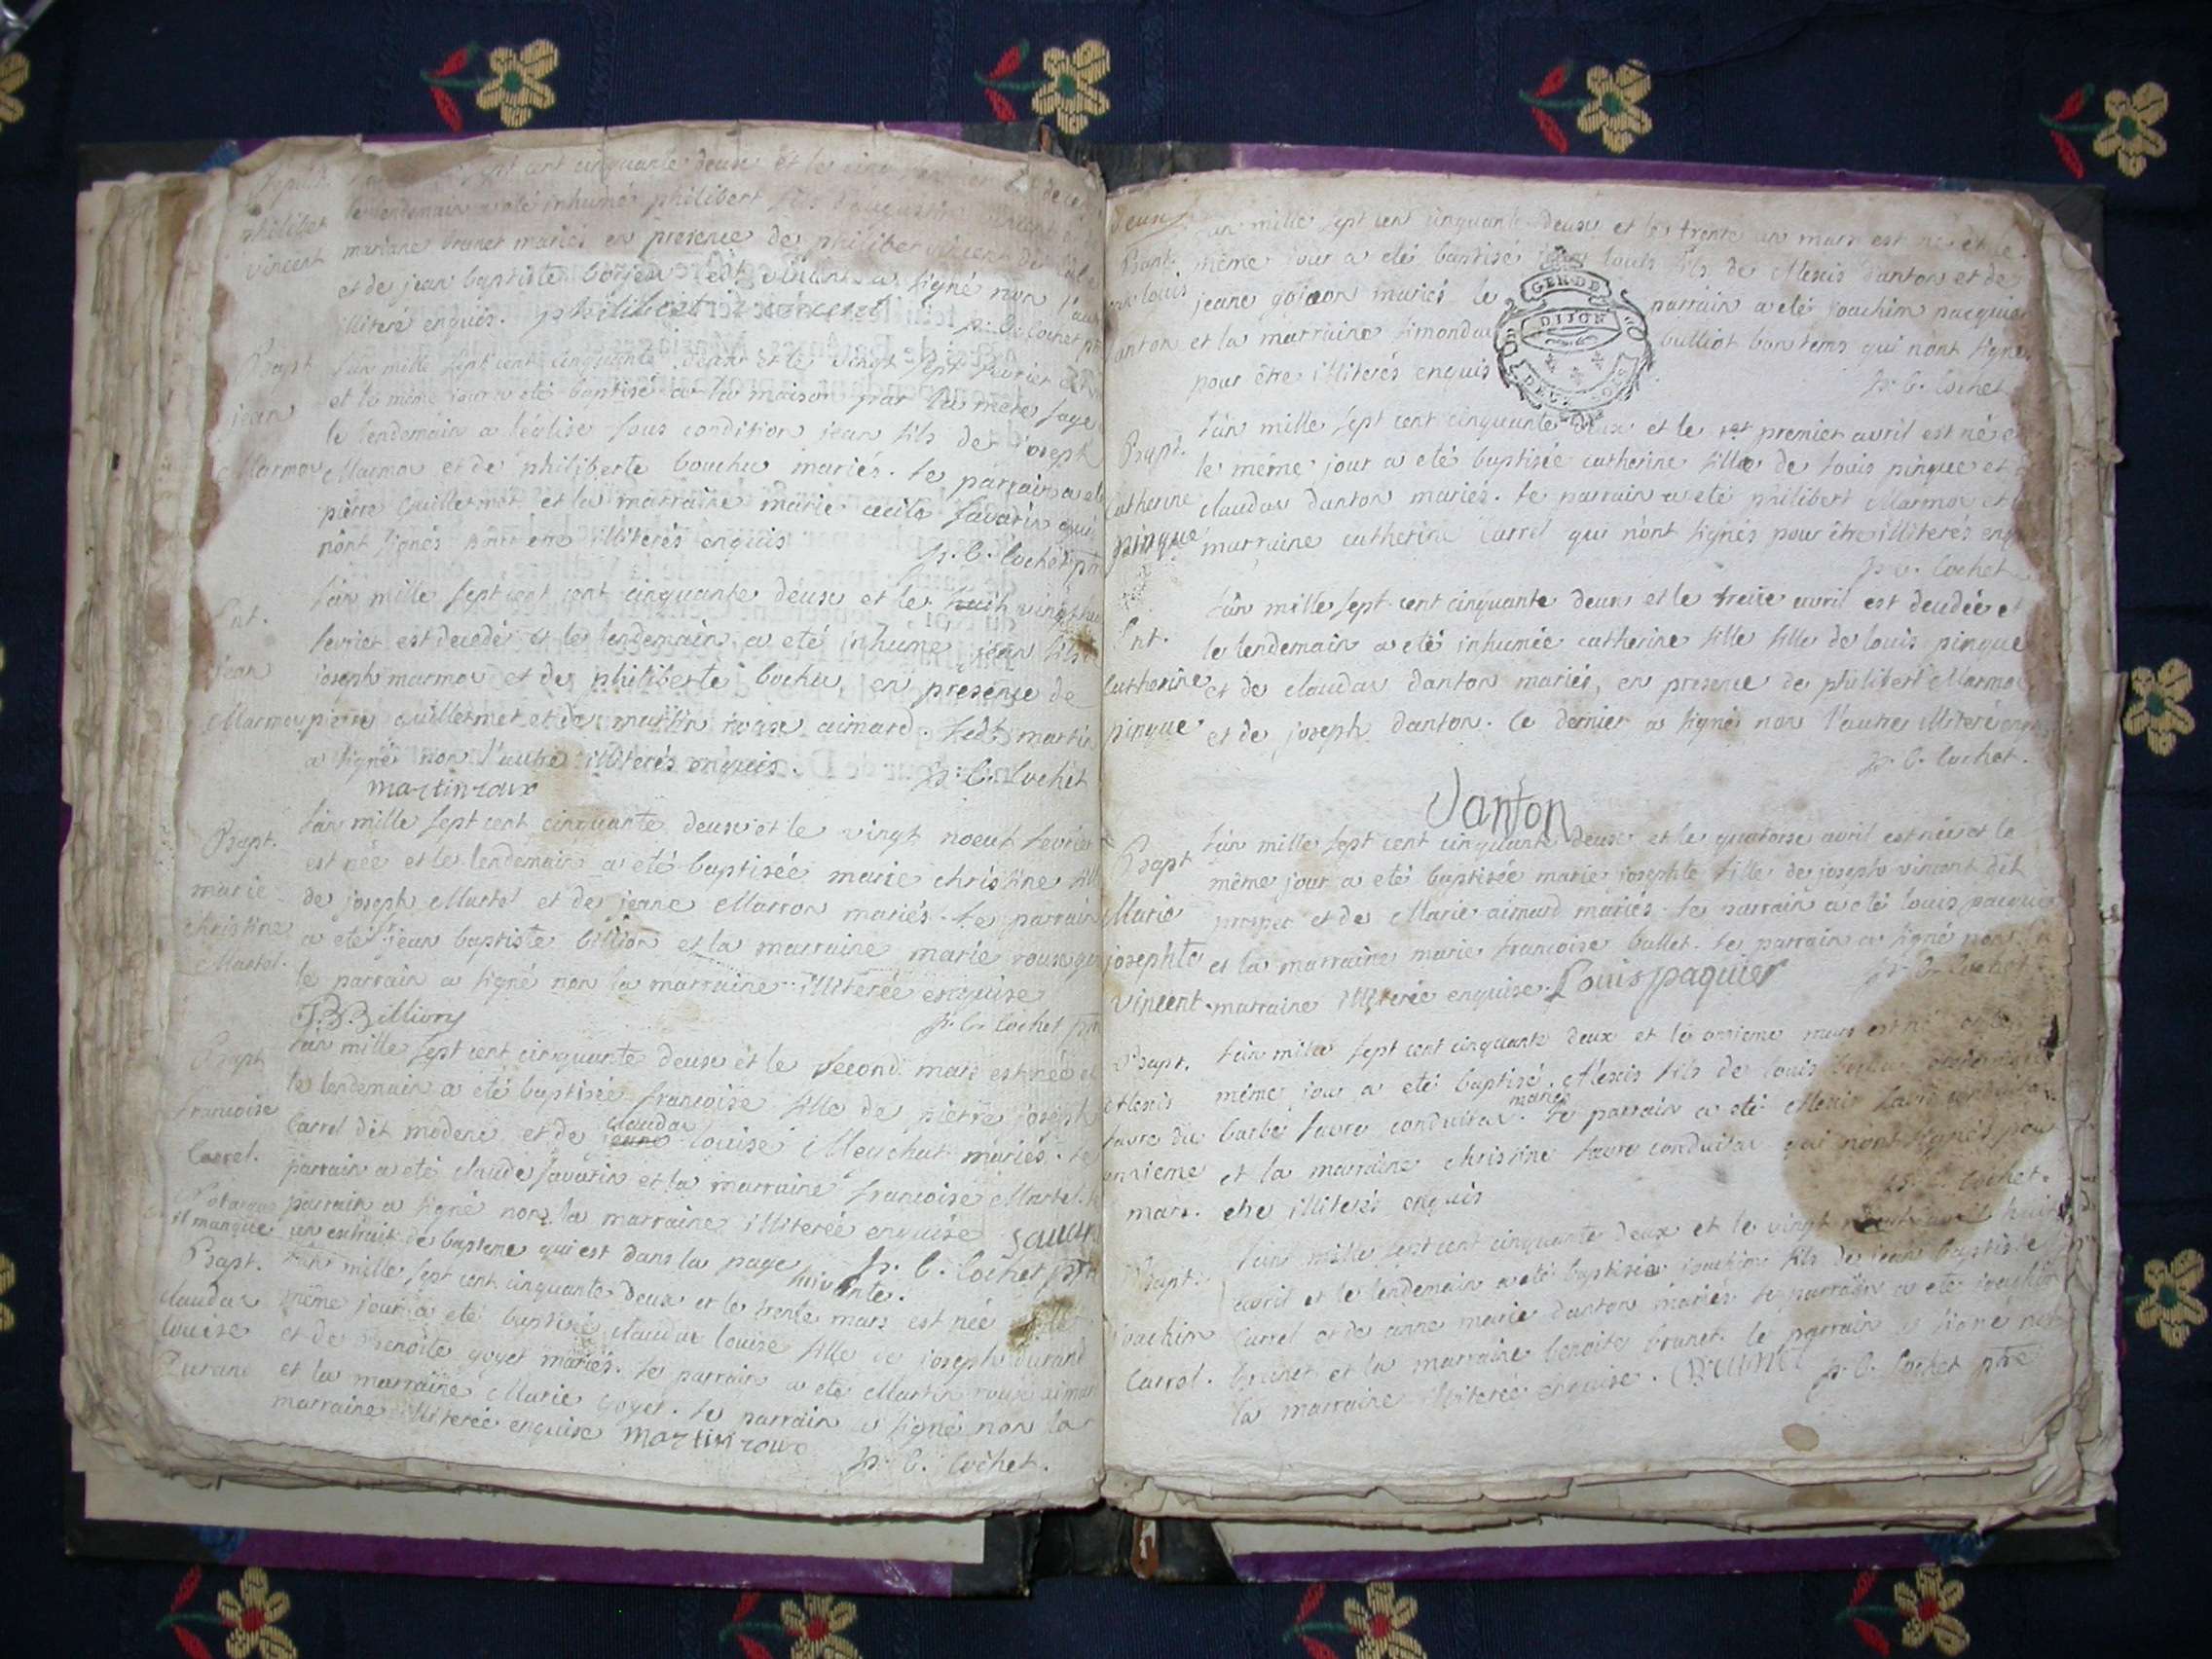 cent cinquante deux et le cinq
philibet le lendemain a été inhumé philibert fils d'augustin vincent
vincent mariane brunet mariés en presence de philibet vincent dit
et de jean baptiste borjeu led. vincent a signé non l'autre
illiteré enquis. philibert vincent p. C. Cochet ptr
Bapt l'an mille sept cent cinquante deux et le vingt sept fevrier est
et le même jour a eté baptisé a la maison par la mere sage
jean le lendemain a l'église sous condition jean fils de joseph
Marmou Marmou et de philiberte bouchu mariés. le parrain a eté
pierre Guillermet et la marraine marie cecile savarin qui
n'ont signés illiterés enquis p. C. Cochet ptr
l'an mille sept cent cent cinquante deux et le huit vingt huit
Ent. fevrier est decedé et le lendemain a eté inhumé jean fils
jean joseph marmou et de philiberte bochu, en presence de
Marmou pierre Guillermet et de martin roux aimard. led. martin
a signé non l'autre illiterés enquis. p. C. Cochet
martin roux
l'an mille sept cent cinquante deux et le vingt noeuf fevrier
Bapt. est née et le lendemain a eté baptisée marie christine fille
marie de joseph Martel et de jeane Marron mariés. le parrain
christine a eté jean baptiste billion et la marraine marie roux qui
Martel. le parrain a signé non la marraine illiterée enquise
J.B. Billion p. C. Cochet ptr
Bapt l'an mille sept cent cinquante deux et le second mars est née et
le lendemain a eté baptisée francoise fille de pierre joseph
francoise Carrel dit modene et de jeane claudae louise Meuchut mariés. le
Carrel. parrain a eté claude savarin et la marraine francoise Martel. le
parrain a signé non la marraine illiterée enquise savarin
il manque un extrait de bapteme qui est dans la page suivante. p. C. Cochet ptr
Bapt. l'an mille sept cent cinquante deux et le trente mars est née et le
claudae même jour a eté baptisée claudae louise fille de joseph durand
louise et de Benoite goyet mariés. le parrain a eté Martin roux aimard
Durand et la marraine Marie Goyet. le parrain a signé non la
marraine illiterée enquise martin roux
p. C. Cochet.
deux l'an mille sept cent cinquante deux et le trente un mars est né et le
Bapt. même jour a eté baptisé jean louis fils de Alexis danton et de
jean louis jeane gojon mariés le parrain a eté joachim pacquier
danton et la marraine simondae bulliot bontems qui n'ont signé
pour être illiterés enquis p. C. Cochet
GEN DE DIJON
DEUX SOLS
l'an mille sept cent cinquante deux et le premier avril est née et
Bapt. le même jour a eté baptisée catherine fille de louis pinque et
Catherine claudae danton mariés. le parrain a eté philibert Marmou et la
pinque marraine catherine Carrel qui n'ont signés pour être illiterés enquis
p. C. Cochet
l'an mille sept cent cinquante deux et le treize avril est decedée et
Ent. le lendemain a eté inhumée catherine fille fille de louis pinque
Catherine et de claudae danton mariés, en presence de philibert Marmou
pinque et de joseph danton. Ce dernier a signé non l'autre illiteré enquis
p. C. Cochet.
Danton
l'an mille sept cent cinquante deux et le quatorse avril est née et le
Bapt même jour a eté baptisée marie josephte fille de joseph vincent dit
Marie prosper et de Marie aimard mariés. le parrain a eté louis pacquier
josephte et la marraine marie francoise bullet. le parrain a signé non la
vincent marraine illiterée enquise. Louis paquier p. C. Cochet
Bapt. l'an mille sept cent cinquante deux et le onsieme mars est né et le
Alexis même jour a eté baptisé Alexis fils de louis
favre du barbe favre conduitae mariés. le parrain a eté Alexis favre conduitae
onsieme et la marraine christine favre conduitae qui n'ont signés pour
mars. etre illiterés enquis p. C. Cochet.
l'an mille sept cent cinquante deux et le vingt huit
Bapt. avril et le lendemain a eté baptisé joachim fils de jean baptiste
joachim Carrel et de anne marie danton mariés. le parrain a eté joachim
Carrel. brunet et la marraine benoite brunet. le parrain a signé non
la marraine illiterée enquise. Brunet p. C. Cochet ptre